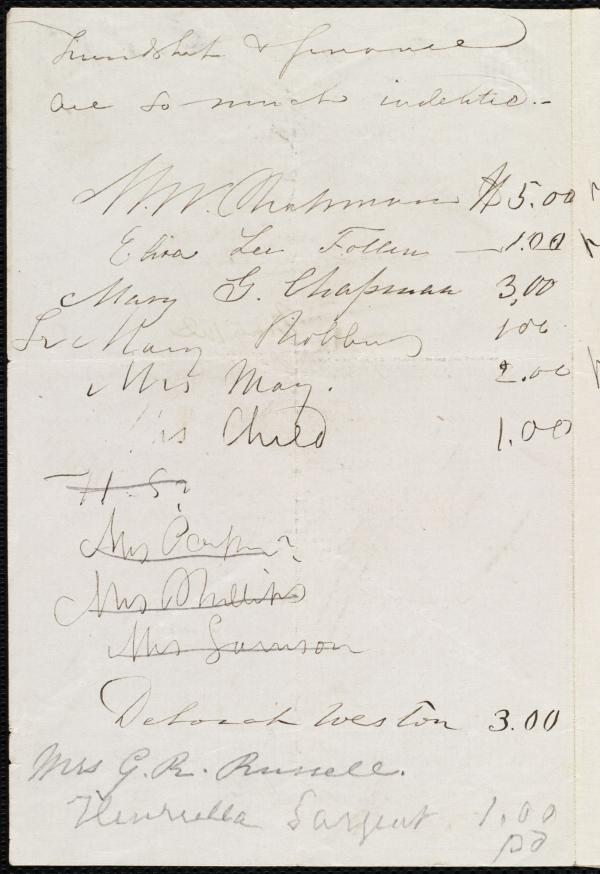 friendship & finance
are so much indebted.-
M. W. Chapman $5.00
Eliza Lee Follen — 1.00
Mary G. Chapman 3,00
Mary Robbins 100
Mrs May. 2.00
Child 1.00
H. S.
Mrs
Mrs Phillips
Mrs Garrison
Deborah Weston 3.00
Mrs G. R. Russell.
Henrietta Sargent 1.00
pd